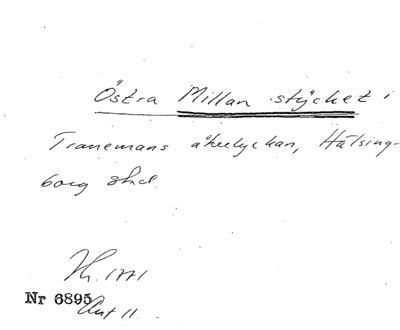 Östra Millan stycket i
Tranemans åkerlyckan, Hälsing-
borg stad.
Nr 6895